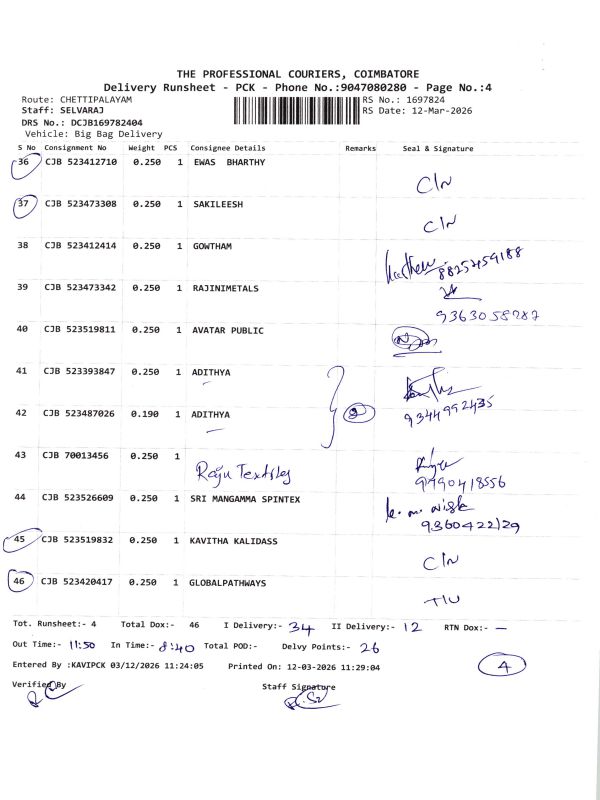 THE PROFESSIONAL COURIERS, COIMBATORE
Delivery Runsheet - PCK - Phone No.:9047080280 - Page No.:4
Route: CHETTIPALAYAM
RS No.: 1697824
Staff: SELVARAJ
RS Date: 12-Mar-2026
DRS No.: DCJB169782404
Vehicle: Big Bag Delivery
S No Consignment No Weight PCS Consignee Details Remarks Seal & Signature
36 CJB 523412710 0.250 1 EWAS BHARTHY
C/N
37 CJB 523473308 0.250 1 SAKILEESH
C/N
38 CJB 523412414 0.250 1 GOWTHAM
39 CJB 523473342 0.250 1 RAJINIMETALS
9363058287
40 CJB 523519811 0.250 1 AVATAR PUBLIC
41 CJB 523393847 0.250 1 ADITHYA
42 CJB 523487026 0.190 1 ADITHYA
2
9344992435
43 CJB 70013456 0.250 1
Raju Textiles
9790418556
44 CJB 523526609 0.250 1 SRI MANGAMMA SPINTEX
9360422129
45 CJB 523519832 0.250 1 KAVITHA KALIDASS
C/N
46 CJB 523420417 0.250 1 GLOBALPATHWAYS
Tot. Runsheet:- 4 Total Dox:- 46 I Delivery:- 34 II Delivery:- 12 RTN Dox:- —
Out Time:- 11:50 In Time:- 8:40 Total POD:- Delvy Points:- 26
Entered By :KAVIPCK 03/12/2026 11:24:05 Printed On: 12-03-2026 11:29:04
4
Verified By Staff Signature